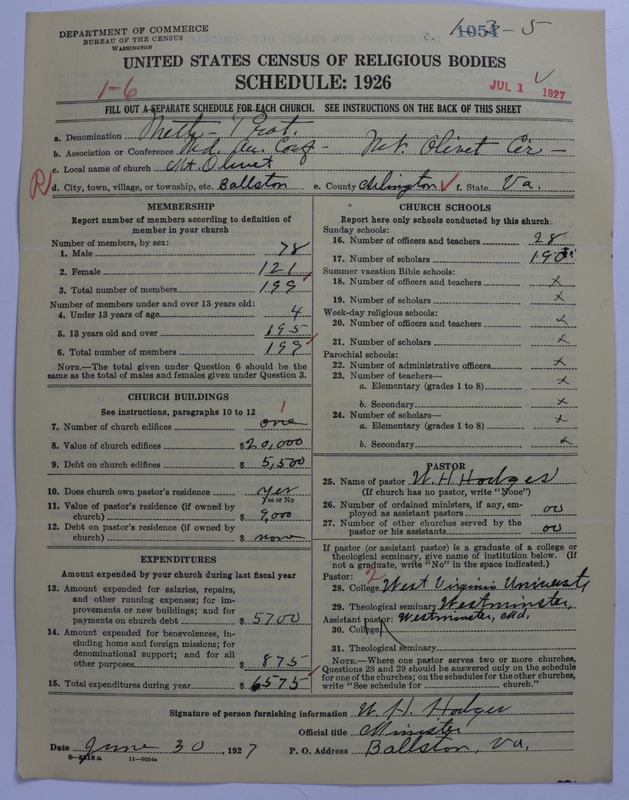 DEPARTMENT OF COMMERCE
BUREAU OF THE CENSUS
WASHINGTON
1054
1-3-5
UNITED STATES CENSUS OF RELIGIOUS BODIES
SCHEDULE: 1926
1-6
JUL 1 1927
FILL OUT A SEPARATE SCHEDULE FOR EACH CHURCH. SEE INSTRUCTIONS ON THE BACK OF THIS SHEET
a. Denomination Meth- Prot.
b. Association or Conference Md. An. Conf- Mt. Olivet Cir-
c. Local name of church Mt. Olivet
R d. City, town, village, or township, etc. Ballston e. County Arlington f. State Va.
MEMBERSHIP
Report number of members according to definition of
member in your church
Number of members, by sex:
1. Male 78
2. Female 121
3. Total number of members 199
Number of members under and over 13 years old:
4. Under 13 years of age 4
5. 13 years old and over 195
6. Total number of members 199
NOTE.—The total given under Question 6 should be the
same as the total of males and females given under Question 3.
CHURCH BUILDINGS
See instructions, paragraphs 10 to 12
1
7. Number of church edifices one
8. Value of church edifices $20,000
9. Debt on church edifices $ 5,500
10. Does church own pastor's residence yes
Yes or No
11. Value of pastor's residence (if owned by
church) $ 9,000
12. Debt on pastor's residence (if owned by
church) $ none
EXPENDITURES
Amount expended by your church during last fiscal year
13. Amount expended for salaries, repairs,
and other running expenses; for im-
provements or new buildings; and for
payments on church debt $ 5700
14. Amount expended for benevolences, in-
cluding home and foreign missions; for
denominational support; and for all
other purposes $ 875
15. Total expenditures during year $ 6575
CHURCH SCHOOLS
Report here only schools conducted by this church
Sunday schools:
16. Number of officers and teachers 28
17. Number of scholars 190
Summer vacation Bible schools:
18. Number of officers and teachers x
19. Number of scholars x
Week-day religious schools:
20. Number of officers and teachers x
21. Number of scholars x
Parochial schools:
22. Number of administrative officers x
23. Number of teachers—
a. Elementary (grades 1 to 8) x
b. Secondary x
24. Number of scholars—
a. Elementary (grades 1 to 8) x
b. Secondary x
PASTOR
25. Name of pastor W. H. Hodges
(If church has no pastor, write "None")
26. Number of ordained ministers, if any, em-
ployed as assistant pastors oo
27. Number of other churches served by the
pastor or his assistants oo
If pastor (or assistant pastor) is a graduate of a college or
theological seminary, give name of institution below. (If
not a graduate, write "No" in the space indicated.)
Pastor: 2
28. College West Virginia University
29. Theological seminary Westminster,
Assistant pastor: Westminster, Md.
30. College
31. Theological seminary
NOTE.—Where one pastor serves two or more churches,
Questions 28 and 29 should be answered only on the schedule
for one of the churches; on the schedules for the other churches,
write "See schedule for church."
Signature of person furnishing information W. H. Hodges
Official title Minister
Date June 30, 1927 P. O. Address Ballston, Va.
11—9054a